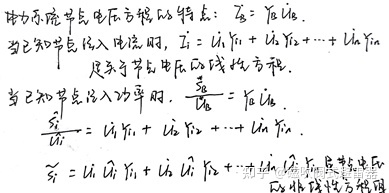 电力系统节点电压方程的特点: İ_B = Y_B U̇_B.
当已知节点注入电流时, İ_i = U̇_1 Y_i1 + U̇_2 Y_i2 + ··· + U̇_n Y_in
是关于节点电压的线性方程.
当已知节点注入功率时, S̃_B / Û_B = Y_B U̇_B.
S̃_i / Û_i = U̇_1 Y_i1 + U̇_2 Y_i2 + ··· + U̇_n Y_in.
S̃_i = U̇_1 Û_i Y_i1 + U̇_2 Û_i Y_i2 + ··· + U̇_n Û_i Y_in 是节点电压
的非线性方程组
知乎